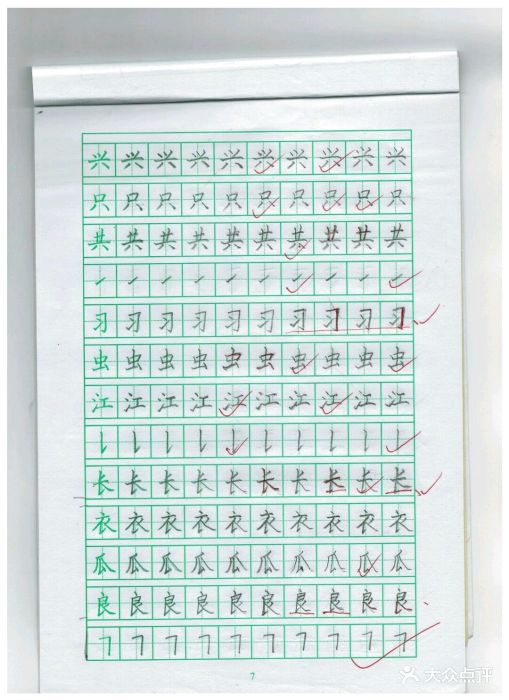 兴兴兴兴兴兴兴兴兴兴
只只只只只只只只只只
共共共共共共共共共共
习习习习习习习习习习
虫虫虫虫虫虫虫虫虫虫
江江江江江江江江江江
长长长长长长长长长长
衣衣衣衣衣衣衣衣衣衣
瓜瓜瓜瓜瓜瓜瓜瓜瓜瓜
良良良良良良良良良良
7
大众点评